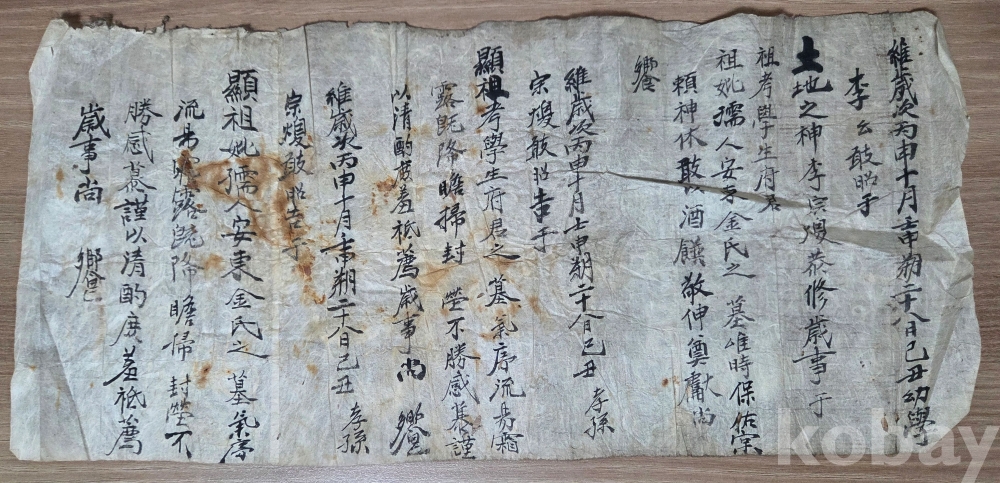 維歲次丙申十月壬申朔二十八日己丑幼學
李 敢昭于
土地之神李宗 恭修歲事于
祖考學生府君
祖妣孺人安東金氏之 墓惟時保佑宗
賴神休敢以酒饌敬伸奠獻尚
饗
維歲次丙申十月壬申朔二十八日己丑 孝孫
宗 敢昭告于
顯祖考學生府君之 墓氣序流易霜
露旣降瞻掃封 塋不勝感慕謹
以清酌庶羞祗薦歲事尚 饗
維歲次丙申十月壬申朔二十八日己丑 孝孫
宗 敢昭告于
顯祖妣孺人安東金氏之 墓氣序
流易霜露旣降瞻掃 封塋不
勝感慕謹以清酌庶羞祗薦
歲事尚 饗
kobay